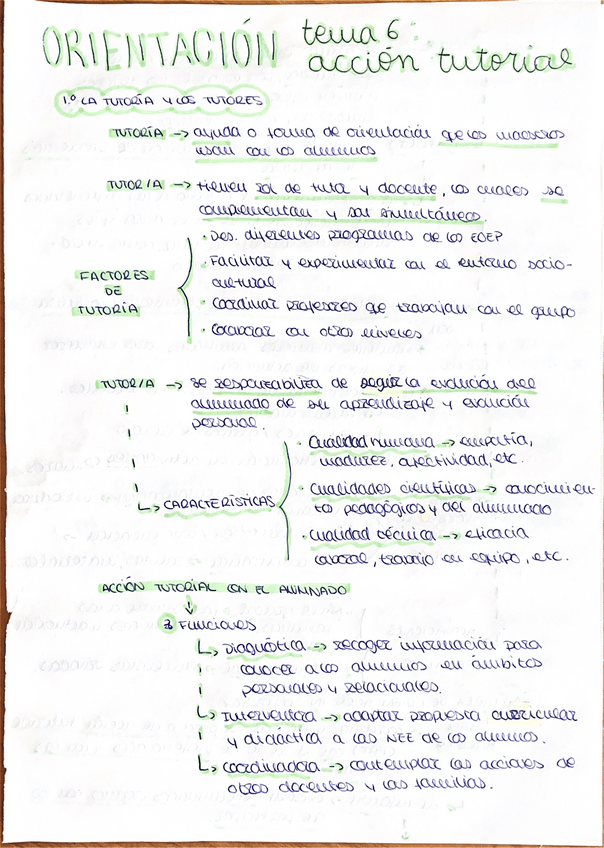 ORIENTACIÓN tema 6:
acción tutorial
1.º LA TUTORÍA Y LOS TUTORES
TUTORÍA -> ayuda o forma de orientación que los maestros
usan con los alumnos
TUTOR/A -> tienen rol de tutor y docente, los cuales se
complementan y son simultáneos.
FACTORES
DE
TUTORÍA
· Des. diferentes programas de los EOEP
· Facilitar y experimentar con el entorno socio-
cultural
· Coordinar profesores que trabajan con el grupo
· Colaborar con otros niveles
TUTOR/A -> se responsabiliza de seguir la evolución del
alumnado de su aprendizaje y evolución
personal.
CARACTERÍSTICAS
· Cualidad humana -> empatía,
madurez, afectividad, etc.
· Cualidades científicas -> conocimien-
to pedagógicos y del alumnado
· Cualidad técnica -> eficacia
laboral, trabajo en equipo, etc.
ACCIÓN TUTORIAL CON EL ALUMNADO
3 Funciones
Diagnóstica -> recoger información para
conocer a los alumnos en ámbitos
personales y relacionales.
Interventora -> adaptar propuesta curricular
y didáctica a las NEE de los alumnos.
coordinadora -> contemplar las acciones de
otros docentes y las familias.